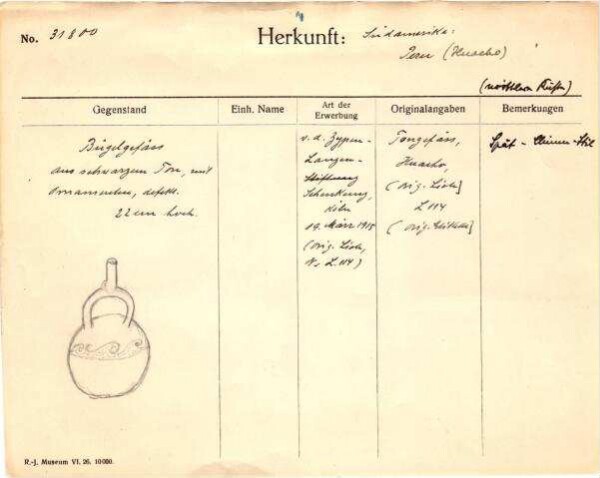 No. 31800
Herkunft: Südamerika:
Peru (Huacho)
(mittlere Küste)
Gegenstand
Einh. Name
Art der Erwerbung
Originalangaben
Bemerkungen
Bügelgefäss
aus schwarzem Ton, mit
Ornamenten, defekt.
22 cm hoch.
v. d. Zypen-
Langen-
Stiftung
Schenkung,
Köln
19. März 1915
(Orig. Liste,
No L 114)
Tongefäss,
Huacho,
(Orig. Liste]
L 114
(Orig. Etikette]
Spät-Chimu-Stil
R.-J. Museum VI. 26. 10000.